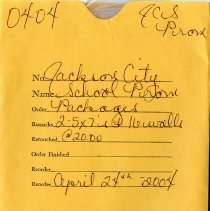 0404
JCS
Prom
No. Jackson City
Name School Prom
Order Packages
Remarks 2-5x7 и 16 walls
Retouched @20.00
Order Finished
Reorder
Reorder April 24th 2004